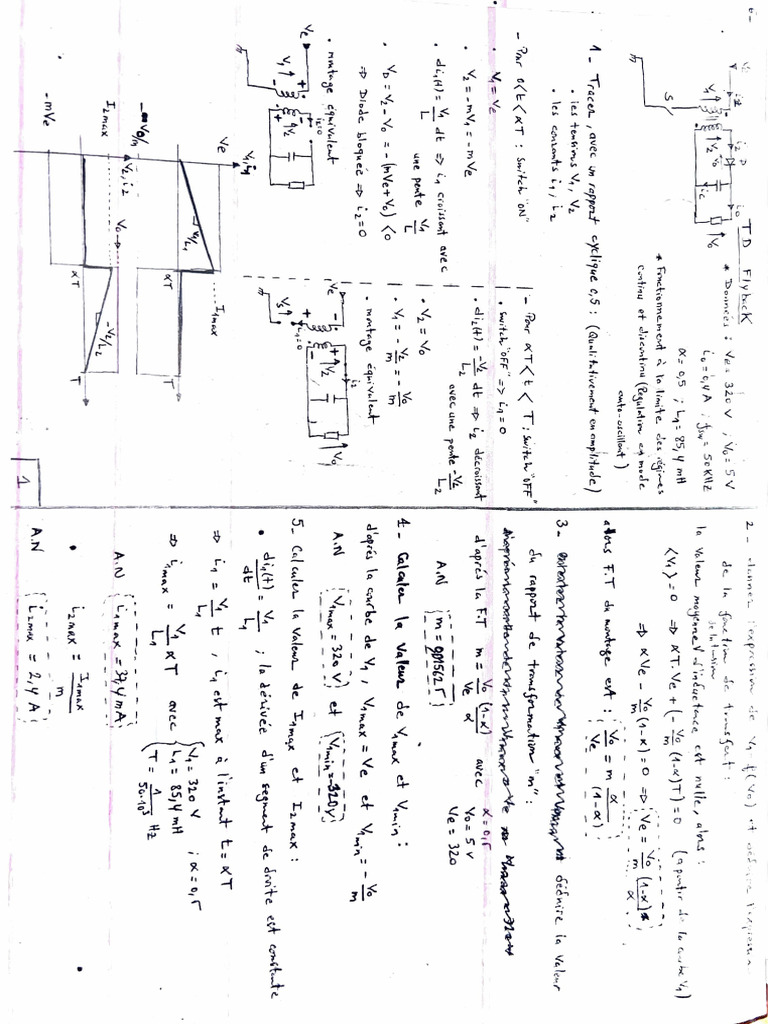 TD Flyback
* Données : Ve = 320 V , Vo = 5 V
io = 0,4 A ; fsw = 50 KHz
α = 0,5 ; L1 = 85,4 mH
* Fonctionnement à la limite des régimes
continu et discontinu (Régulation en mode
auto-oscillant)
1 - Tracer, avec un rapport cyclique 0,5 : (Qualitativement en amplitude)
• les tensions V1, V2
• les courants i1, i2
- Pour 0<t<αT : switch "ON"
• V1 = Ve
• V2 = -mV1 = -mVe
• di1(t) = V1/L dt ⇒ i1 croissant avec
une pente V1/L
• VD = V2 - Vo = -(mVe + Vo) < 0
⇒ Diode bloquée ⇒ i2 = 0
• montage équivalent
- Pour αT < t < T : switch "OFF"
• switch "OFF" ⇒ i1 = 0
• di2(t) = -V2/L2 dt ⇒ i2 décroissant
avec une pente -V2/L2
• V2 = Vo
• V1 = -V2/m = -Vo/m
• montage équivalent
Ve
V1, i1
I1max
V1/L1
αT
T
-Vo/m
V2, i2
I2max
Vo
-V2/L2
αT
T
-mVe
1
2 - Donner l'expression de V1 f(Vo) et déduire l'expression
de la fonction de transfert :
la valeur moyenne de la tension d'inductance est nulle, alors :
⟨V1⟩ = 0 ⇒ αT.Ve + (-Vo/m (1-α)T) = 0 (à partir de la courbe V1)
⇒ αVe - Vo/m (1-α) = 0 ⇒ Ve = Vo/m (1-α)/α
alors F.T du montage est : Vo/Ve = m α/(1-α)
3 - déduire la valeur
du rapport de transformation "m" :
d'après la F.T m = Vo/Ve (1-α)/α avec α = 0,5
Vo = 5 V
Ve = 320
A.N m = 0,015625
4 - Calculer la valeur de V1max et V1min :
d'après la courbe de V1, V1max = Ve et V1min = -Vo/m
A.N V1max = 320 V et V1min = -320 V
5 - Calculer la valeur de I1max et I2max :
• di1(t)/dt = V1/L1 ; la dérivée d'un segment de droite est constante
⇒ i1 = V1/L1 t , i1 est max à l'instant t = αT
⇒ i1max = V1/L1 αT avec V1 = 320 V ; α = 0,5
L1 = 85,4 mH
T = 1/50.10³ Hz
A.N I1max = 37,4 mA
• i2max = I1max/m
A.N I2max = 2,4 A